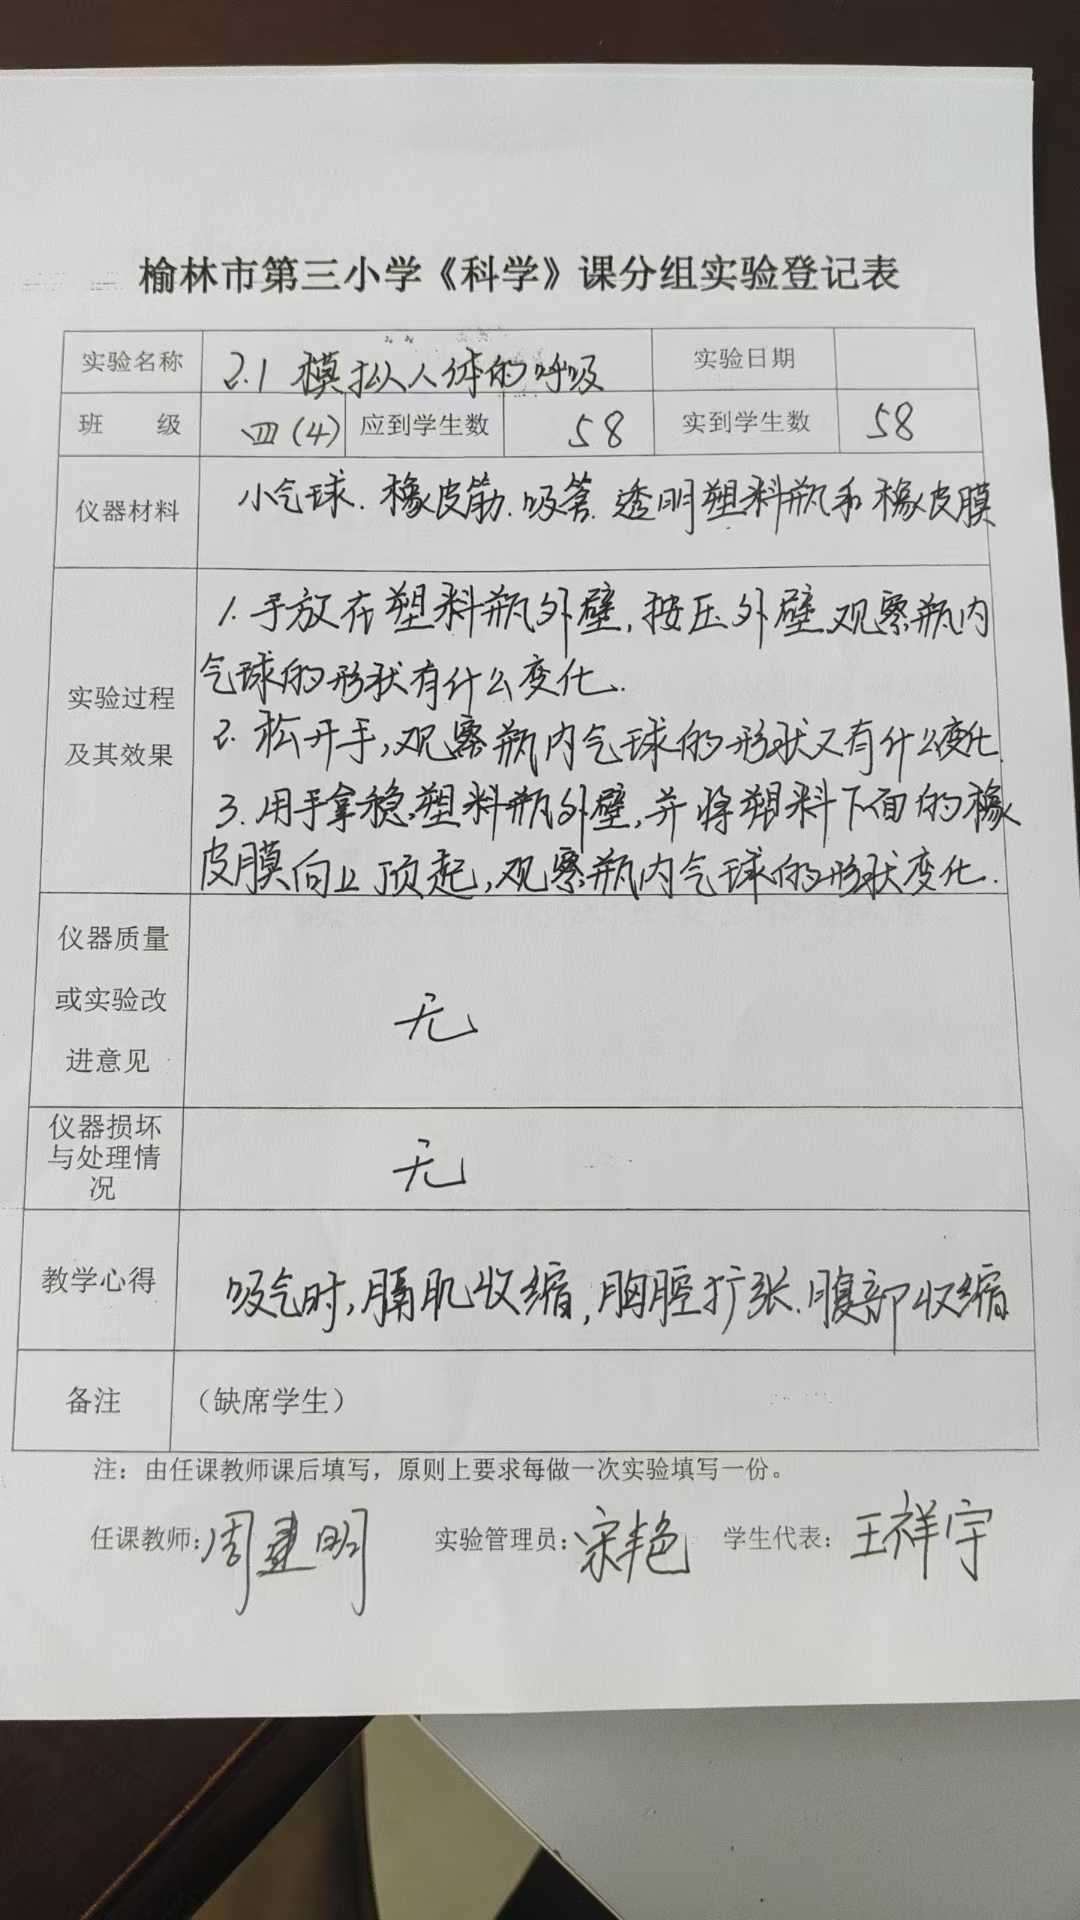 榆林市第三小学《科学》课分组实验登记表
实验名称 2.1 模拟人体的呼吸 实验日期
班 级 四(4) 应到学生数 58 实到学生数 58
仪器材料 小气球.橡皮筋.吸管.透明塑料瓶和橡皮膜
实验过程
及其效果
1.手放在塑料瓶外壁,按压外壁.观察瓶内
气球的形状有什么变化.
2.松开手,观察瓶内气球的形状又有什么变化.
3.用手拿稳塑料瓶外壁,并将塑料下面的橡
皮膜向上顶起,观察瓶内气球的形状变化.
仪器质量
或实验改
进意见
无
仪器损坏
与处理情
况
无
教学心得 吸气时,膈肌收缩,胸腔扩张.腹部收缩
备注 （缺席学生）
注：由任课教师课后填写，原则上要求每做一次实验填写一份。
任课教师:周建明 实验管理员:宋艳 学生代表:王祥宇